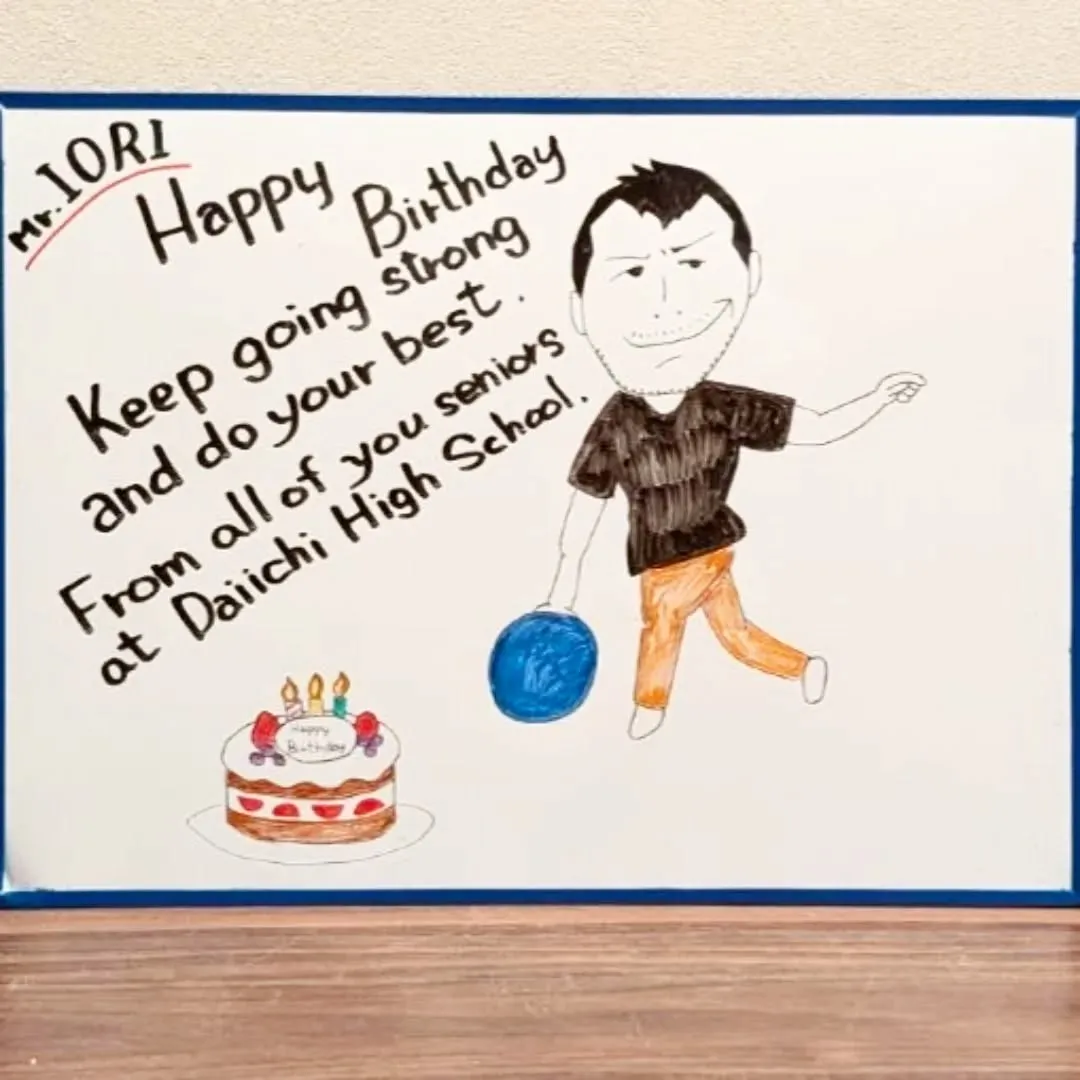 Mr. IORI
Happy Birthday
Keep going strong
and do your best.
From all of you seniors
at Daiichi High School.
Happy
Birthday